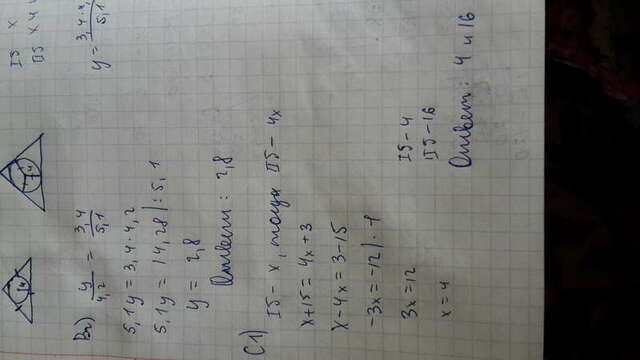 IS x
IIS x 4 4
В2) y/4,2 = 3,4/5,1
y = 3,4 · 4,/5,1
5,1y = 3,4 · 4,2
5,1y = 14,28 | : 5,1
y = 2,8
Ответ: 2,8
C1)
IS - x, тогда IIS - 4x
x+15 = 4x+3
x-4x = 3-15
-3x = -12 | · -1
3x = 12
x = 4
IS - 4
IIS - 16
Ответ: 4 и 16